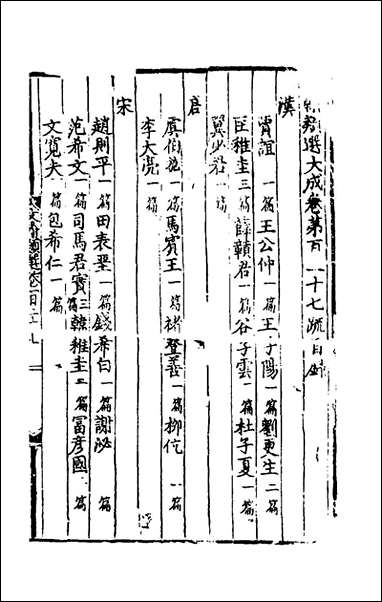 類選大成卷第百二十七疏目録
漢
賈誼一篇王公仲一篇王子陽一篇劉更生二篇
匡稚圭三篇薛贛君一篇谷子雲一篇杜子夏一篇
翼少君一篇
唐
虞伯施一篇馬賓王一篇褚登善一篇柳伉一篇
李大亮一篇
宋
趙則平一篇田表聖一篇錢希白一篇謝泌一篇
范希文一篇司馬君實三篇韓稚圭三篇富彦國一篇
文寬夫一篇包希仁一篇